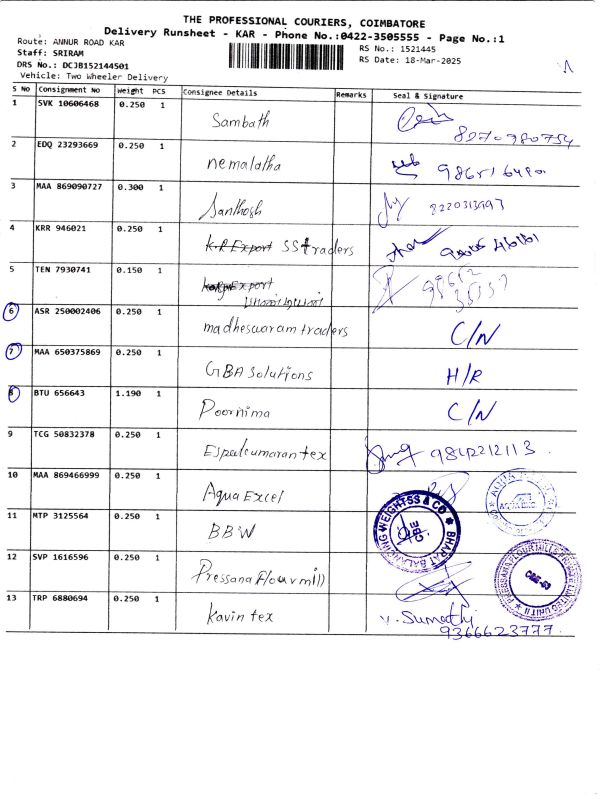 THE PROFESSIONAL COURIERS, COIMBATORE
Delivery Runsheet - KAR - Phone No.:0422-3505555 - Page No.:1
Route: ANNUR ROAD KAR
Staff: SRIRAM
DRS No.: DCJB152144501
Vehicle: Two Wheeler Delivery
RS No.: 1521445
RS Date: 18-Mar-2025
S No Consignment No Weight PCS Consignee Details Remarks Seal & Signature
1 SVK 10606468 0.250 1 Sambath
2 EDQ 23293669 0.250 1 nemalatha
3 MAA 869090727 0.300 1 Santhosh
4 KRR 946021 0.250 1 K.R Export SS traders
5 TEN 7930741 0.150 1 Export
6 ASR 250002406 0.250 1 madheswaram traders C/N
7 MAA 650375869 0.250 1 GBA Solutions H/R
8 BTU 656643 1.190 1 Poornima C/N
9 TCG 50832378 0.250 1 tex 9842212113
10 MAA 869466999 0.250 1 Aqua Excel
11 MTP 3125564 0.250 1 BBW
BHARAT BALANCING WEIGHTSS & CO
CBE
12 SVP 1616596 0.250 1 Pressana Flour mill
PRESSANA FLOUR MILLS PRIVATE LIMITED UNIT II
CBE-53
13 TRP 6880694 0.250 1 Kavin tex V. Sumathi
9366623777.